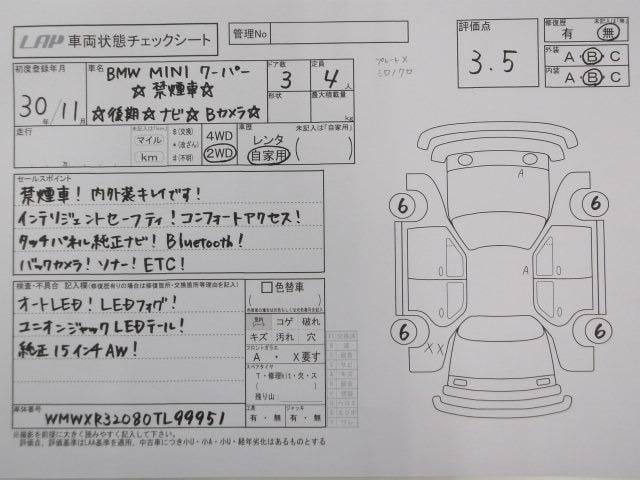 LAP 車両状態チェックシート
管理No
評価点 3.5
修復歴 未記入は「無」
有 無
外装 A・B・C
内装 A・B・C
初度登録年月
30年 11月
車名
BMW MINI クーパー
☆禁煙車☆
☆後期☆ナビ☆Bカメラ☆
ドア数 3
定員 4人
形状
最大積載量 kg
プレート×
シロ/クロ
走行 万
未記入は「km」
マイル
km
$(交換)
*(改ざん)
#(不明)
4WD
2WD
車歴 未記入は「自家用」
レンタ
自家用 ( )
セールスポイント
禁煙車! 内外装キレイです!
インテリジェントセーフティ! コンフォートアクセス!
タッチパネル純正ナビ! Bluetooth!
バックカメラ! ソナー! ETC!
検査・不具合 記入欄(修復歴有りの場合は修復箇所・交換箇所等理由を記入)
オートLED! LEDフォグ!
ユニオンジャックLEDテール!
純正15インチAW!
色替車
( )
室内シート
コゲ 破れ
キズ 汚れ 穴
フロントガラス
A ・ X要す
スペアタイヤ
T・修理kit・欠・ス
( )
残り山
工具 有・無
ジャッキ 有・無
車体番号
WMWXR32080TL99951
※撮影を前提に大きく読みやすく記入して下さい。
評価点、評価基準はLAA基準を適用、中古車につき小U・小A・小U・経年劣化はあるものとする
A
6
6
A
A
6
6
X X
A